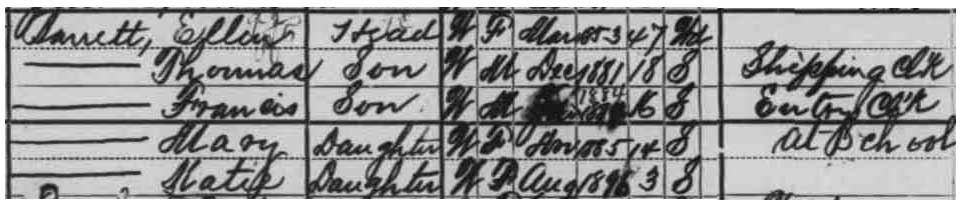 Barrett, Ellen Head W F Mar 1853 47 Wd
Thomas Son W M Dec 1881 18 S Shipping Clk
Francis Son W M 1884 16 S Entry Clk
Mary Daughter W F 1885 14 S At School
Katie Daughter W F Aug 1896 3 S